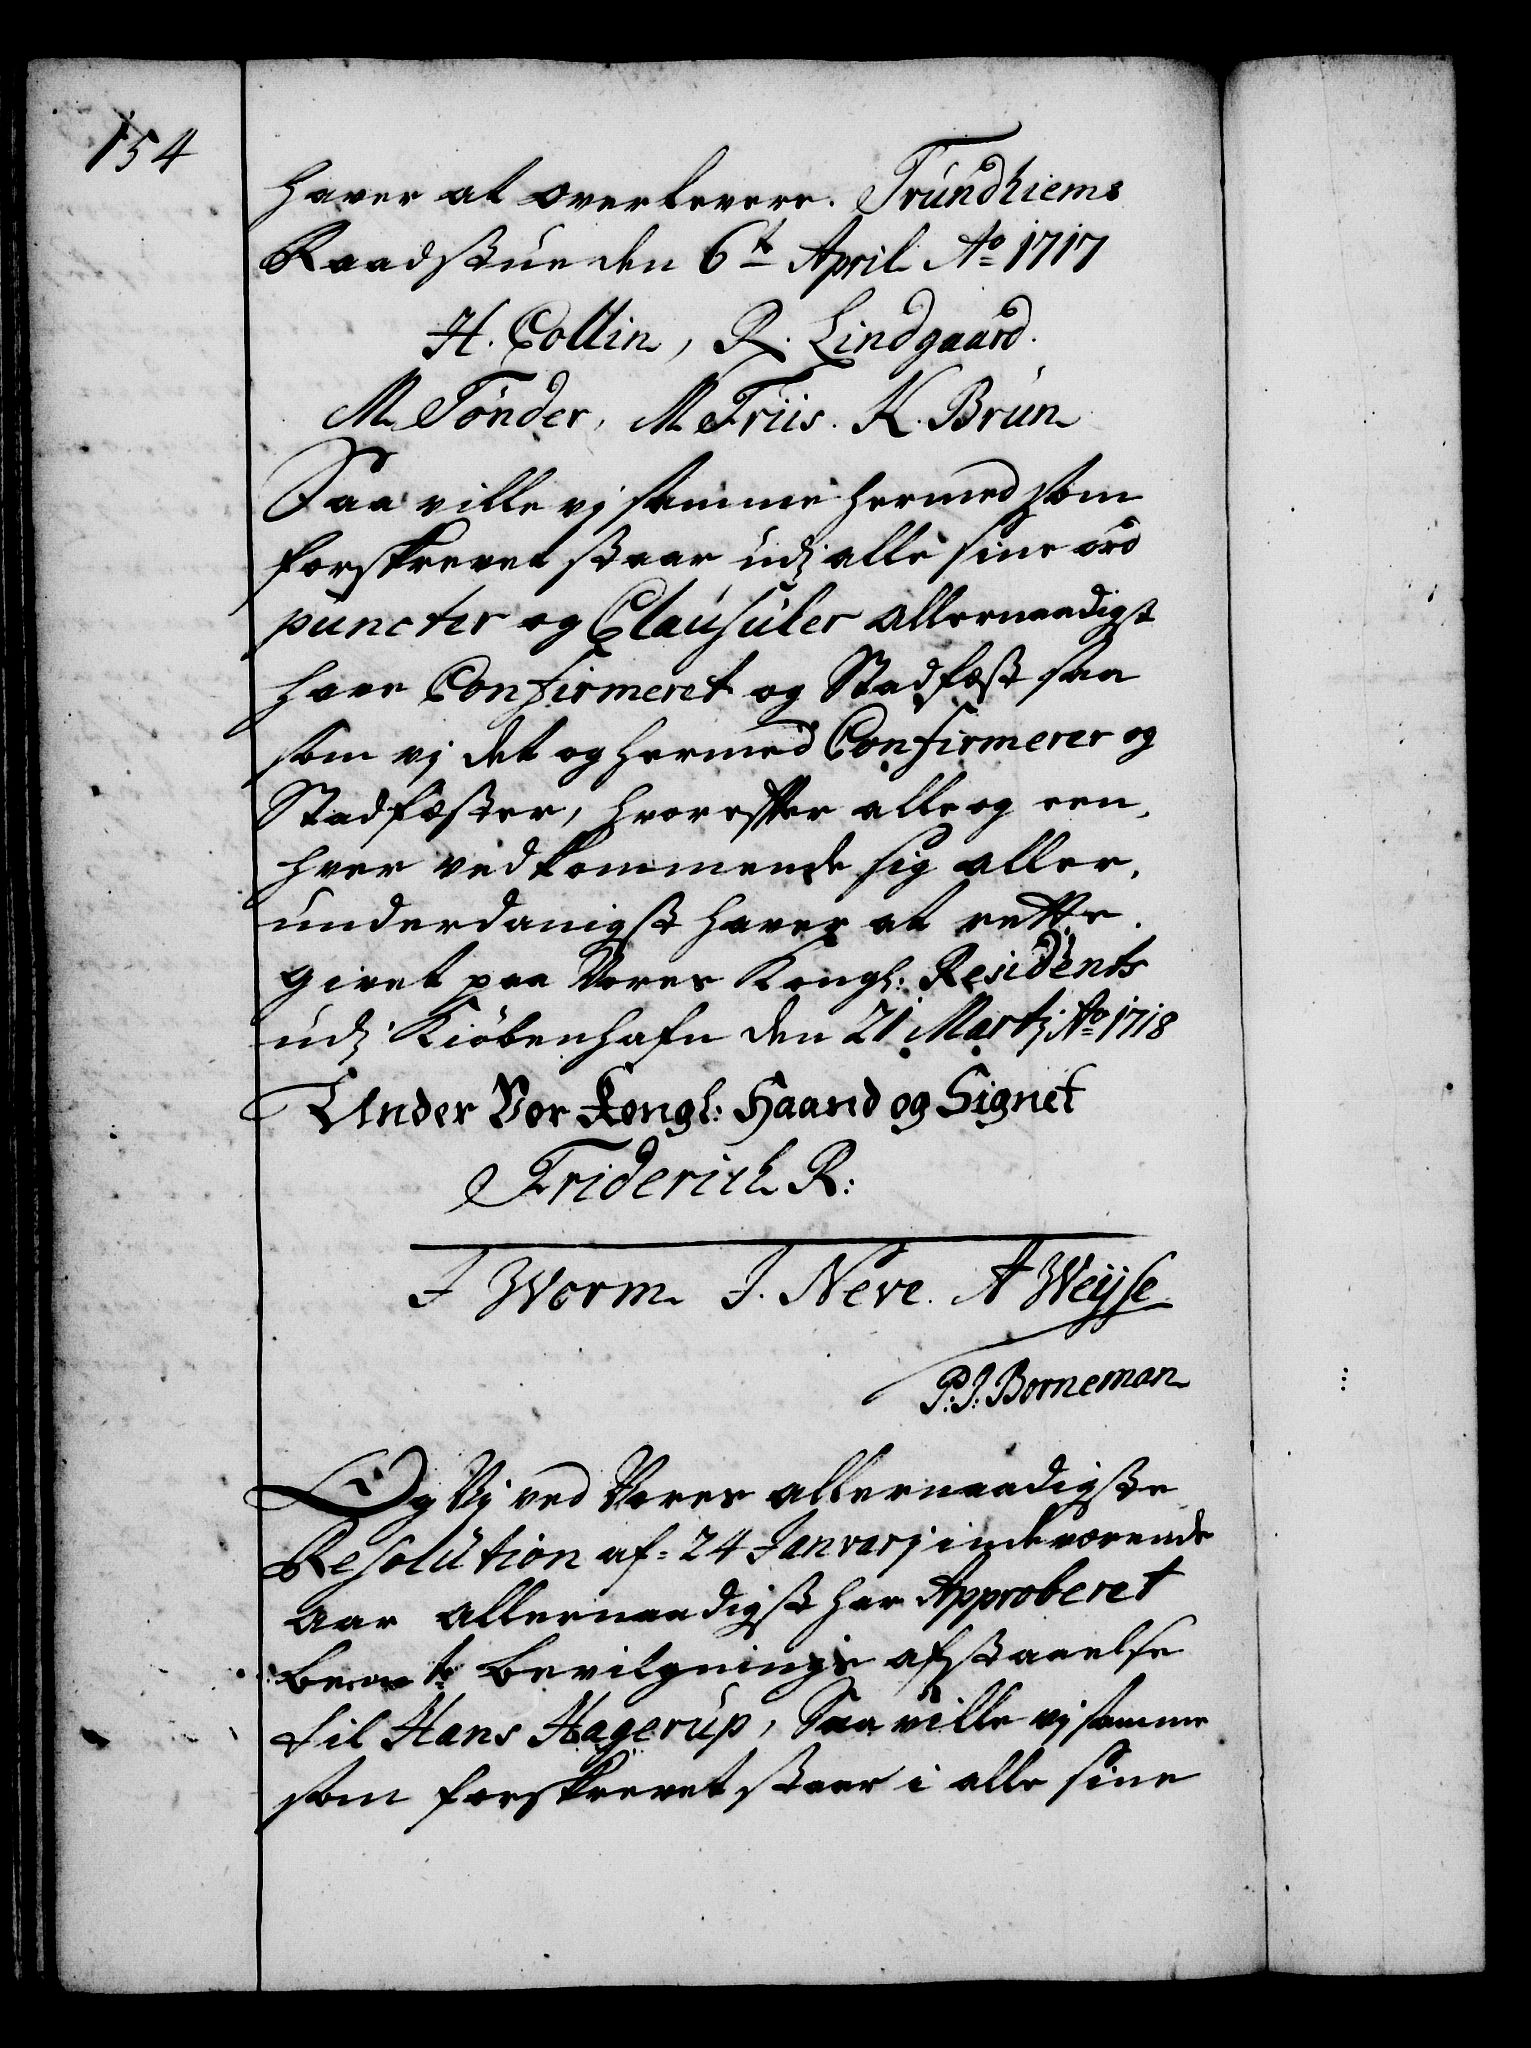 154
haver at overlevere. Trundhiems
Raadstue den 6te April Ao 1717
H. Collin, R. Lindgaard.
M. Tønder, M. Friis. K. Brun
Saa ville vj samme hermed som
forskrevet staar udj alle sine ord
puncter og Clausuler allernaadigst
have Confirmeret og Stadfæst saa
som vj det og hermed Confirmerer og
Stadfæster, hvorefter alle og een,
hver vedkommende sig aller,
underdanigst haver at rette.
givet paa Vores Kongl: Residents
udj Kiöbenhafn den 21 Martj Ao 1718
Under Vor Kongl: Haand og Signet
Friderich R:
F Worm J. Neve. A Weyse
P. J: Borneman
Og Vj ved Vores allernaadigste
Resolution af 24 Janvarj indeværende
aar allernaadigst har Approberet
bem.te bevilgnings afstaaelse
til Hans Hagerup, Saa ville vj samme
som forskrevet staar i alle sine